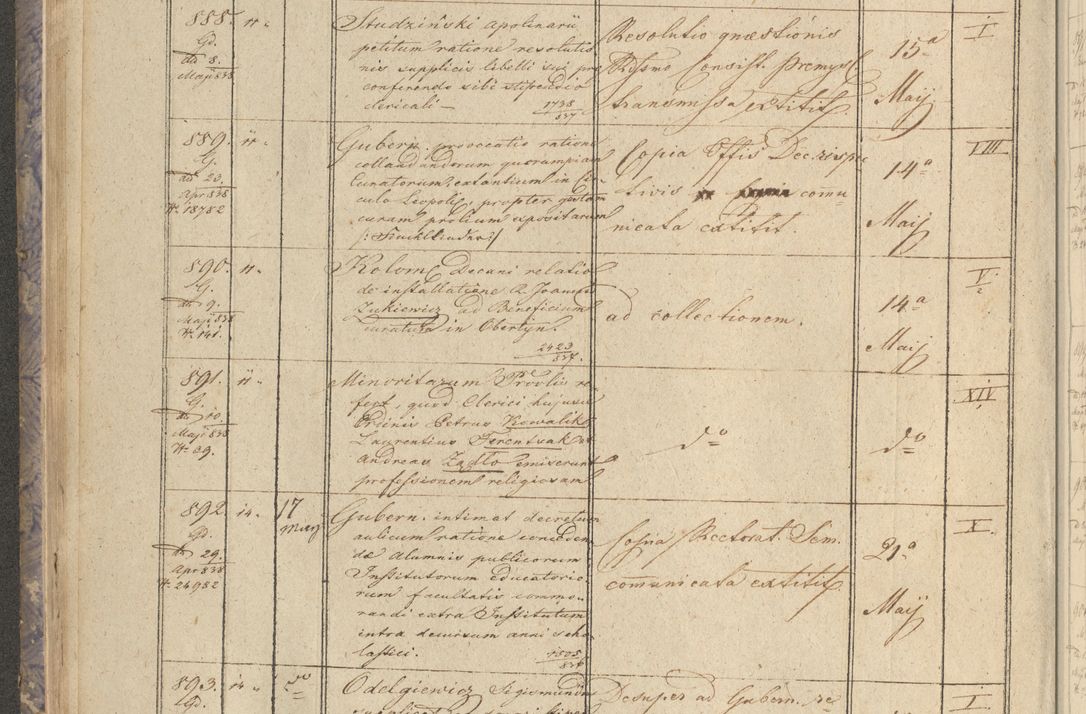 888. 11.
Gd.
dd 8.
Maji 838
Studziński Apolinarii
petitum ratione resolutio
nis supplicis libelli sui pro
conferendo sibi stipendio
clericali —
1738
837
Resolutio quæstionis
Rdsmo Consist. Premysl.
transmissa extitit.
15ª
Maij
I
889. 11.
G.
dd 23.
Apr 838
N. 18782
Gubern. provocatio ratione
collaudandorum quorumpiam
Curatorum, extantium in Cir-
culo Leopolis, propter
curam prolium expositarum
Copia Offis Dec. respe
ctivis comu
nicata extitit.
14ª
Maij
VIII
890. 11.
G.
dd 9.
Maji 838
N. 141.
Kolom. Decani relatio
de installatione R. Joannis
Zukiewicz ad Beneficium
curatum in Obertyn.
2423
837.
ad collectionem.
14ª
Maij
V.
2
891. 11.
G.
dd 10.
Maji 838
N. 39.
Minoritarum Provlis re-
fert, quod Clerici hujus
Ordinis Petrus Kowalik
Laurentius Terentsak et
Andreas Zajdło emiserunt
professionem religiosam
do
do
XIV
892. 14.
Gd.
dd 29.
Apr 838
N. 24982
17
May
Gubern. intimat decretum
aulicum ratione conceden
dæ Alumnis publicorum
Institutorum educatorio-
rum facultatis commo-
randi extra Institutum
intra decursum anni scho
lastici.
1505
837
Copia Rectorat. Sem.
comunicata extitit.
21ª
Maij
X.
893. 14.
Gd.
do
Odelgiewicz Sigismundus
Desuper ad Gubern. re
I.